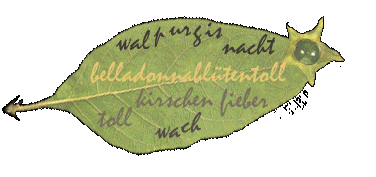 walpurgis
nacht
belladonnablütentoll
kirschen fieber
toll
wach